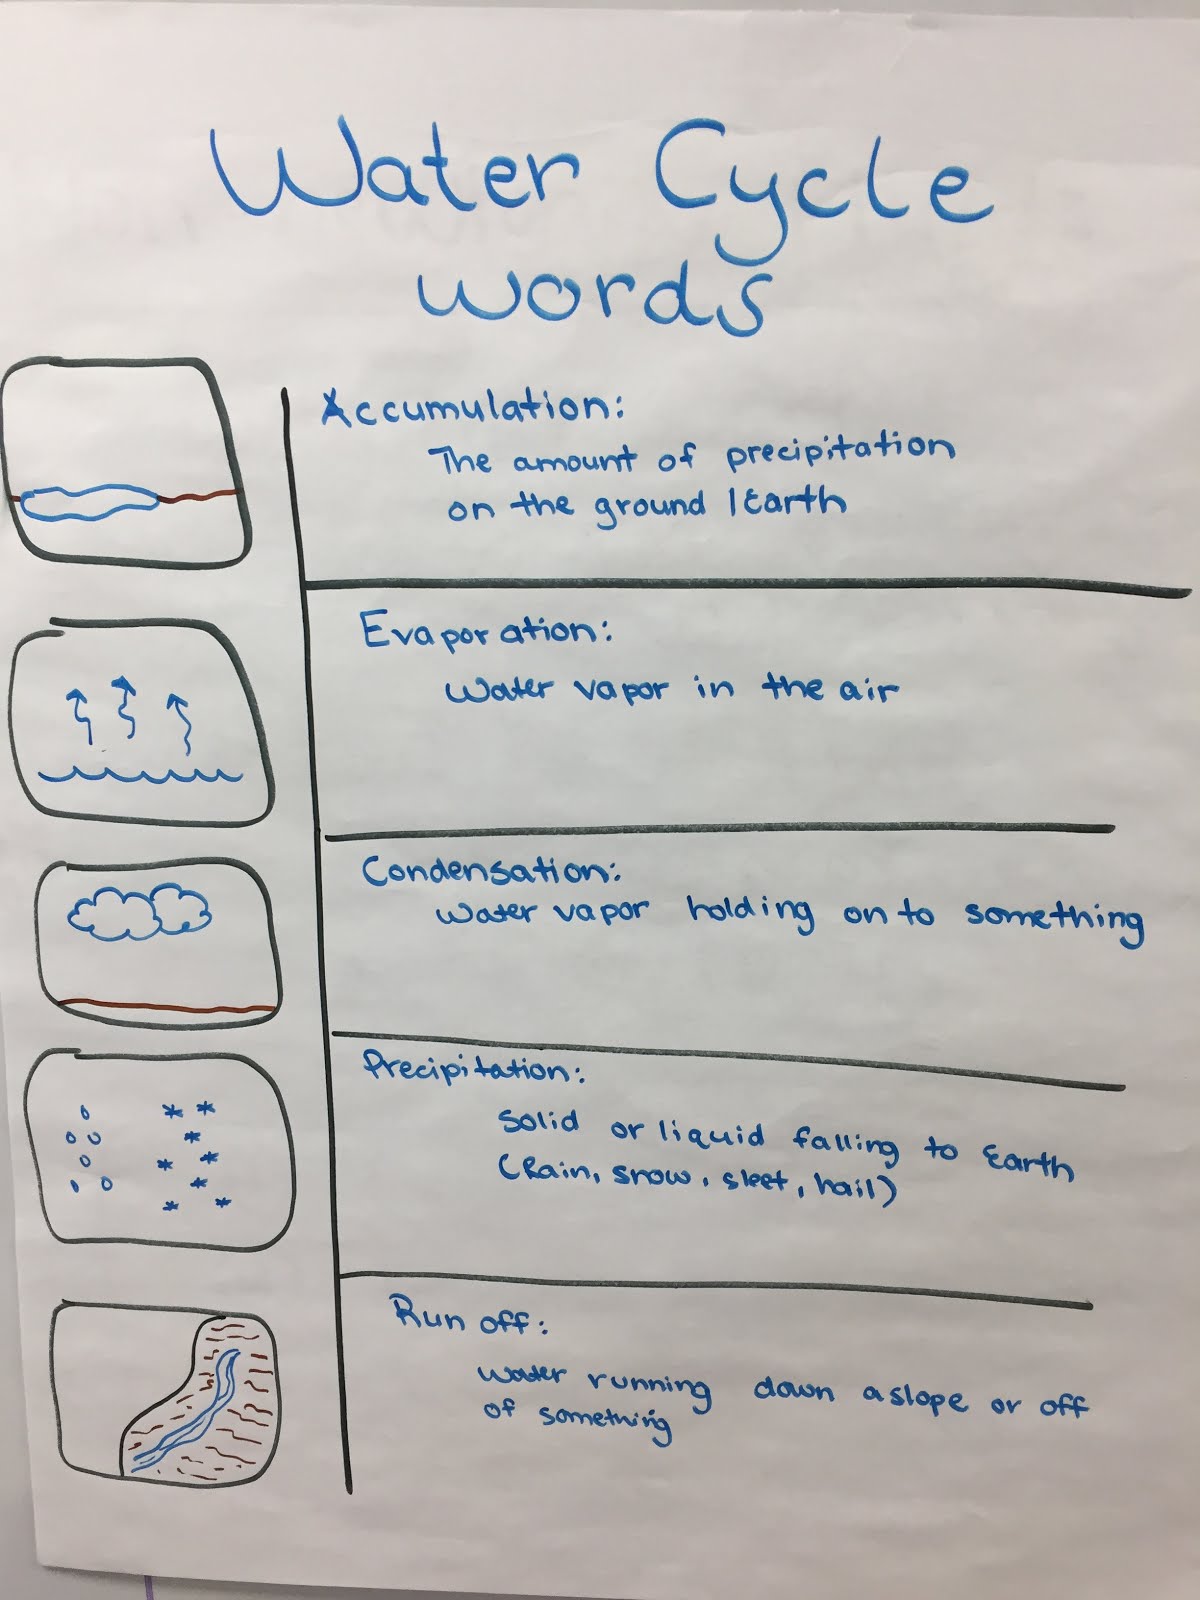 Water Cycle
words
Accumulation:
The amount of precipitation
on the ground /Earth
Evaporation:
Water vapor in the air
Condensation:
Water vapor holding on to something
Precipitation:
Solid or liquid falling to Earth
(Rain, snow, sleet, hail)
Run off:
Water running down a slope or off
of something